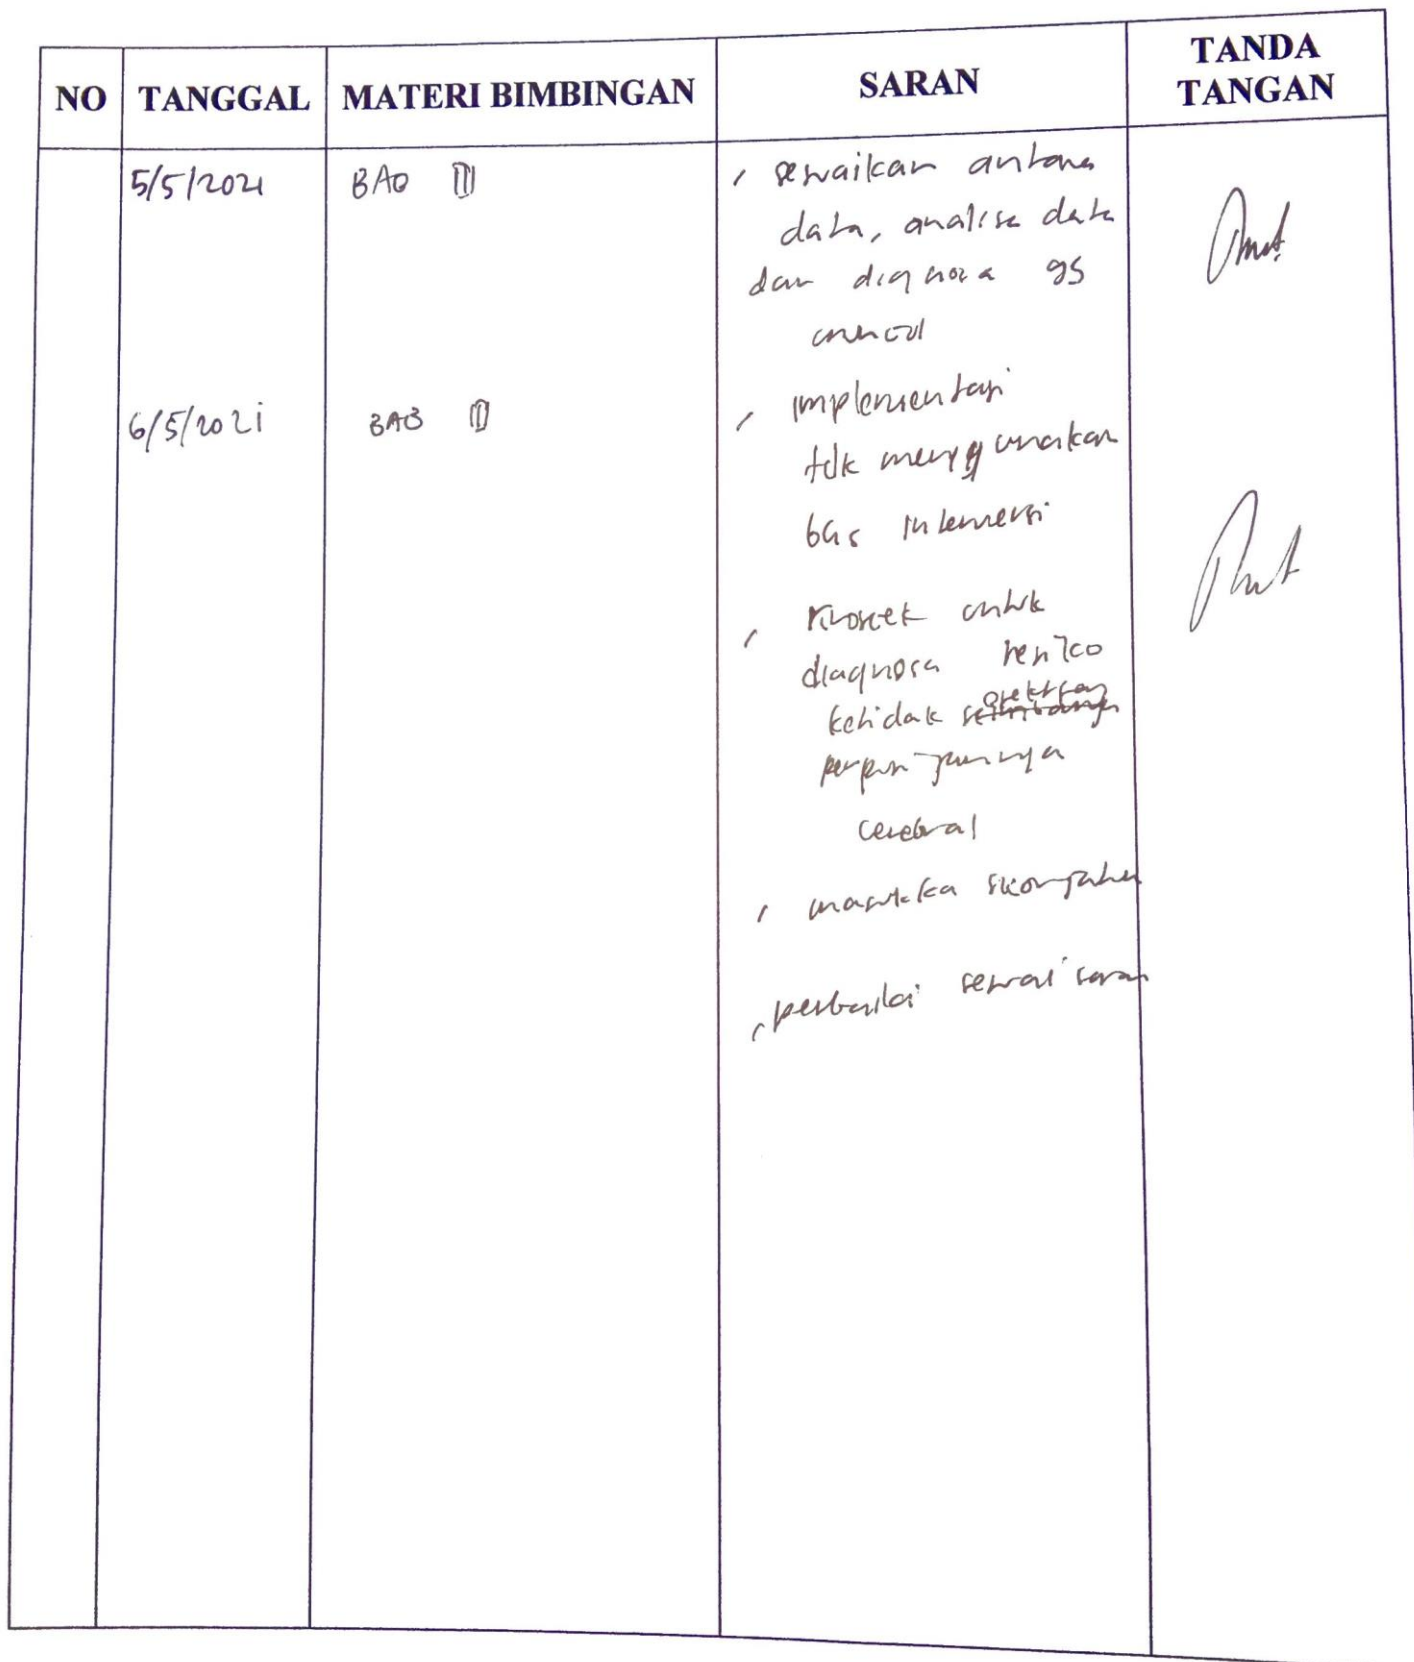 NO TANGGAL MATERI BIMBINGAN SARAN TANDA TANGAN
5/5/2021 BAB III - sesuaikan antara
data, analisa data
dan diagnosa yg
muncul
6/5/2021 BAB III - implementasi
tdk menggunakan
bhs intervensi
- Kroscek untuk
diagnosa resiko
ketidak efektifan
perfusi jaringnya
cerebral
- masukka
- perbaiki sesuai saran